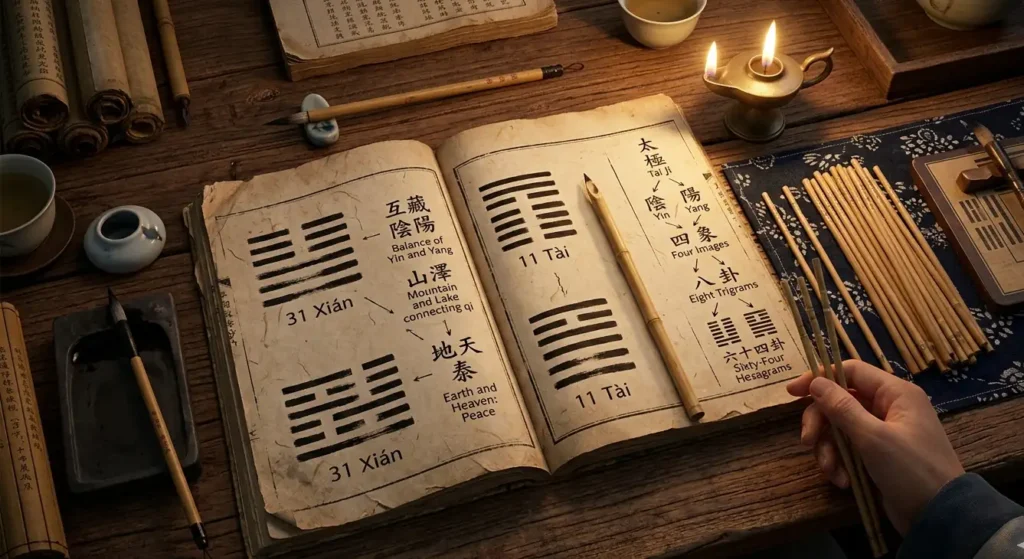 互藏
陰陽
Balance of
Yin and Yang
31 Xián
山澤
Mountain
and Lake
connecting qi
地天
泰
Earth and
Heaven:
Peace
31 Xián
11 Tài
11 Tài
太
極
Tai ji
陰 陽
Yin Yang
四象
Four Images
八卦
Eight Trigrams
六十四卦
Sixty-Four
Hesagrams